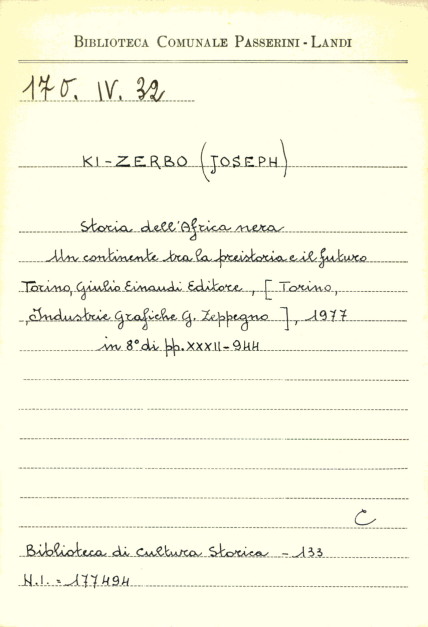 BIBLIOTECA COMUNALE PASSERINI - LANDI
170. IV. 32
KI-ZERBO (JOSEPH)
Storia dell'Africa nera
Un continente tra la preistoria e il futuro
Torino, Giulio Einaudi Editore, [Torino,
Industrie Grafiche G. Zeppegno], 1977
in 8° di pp. XXXII-944
C
Biblioteca di cultura Storica - 133
N.I. = 177494